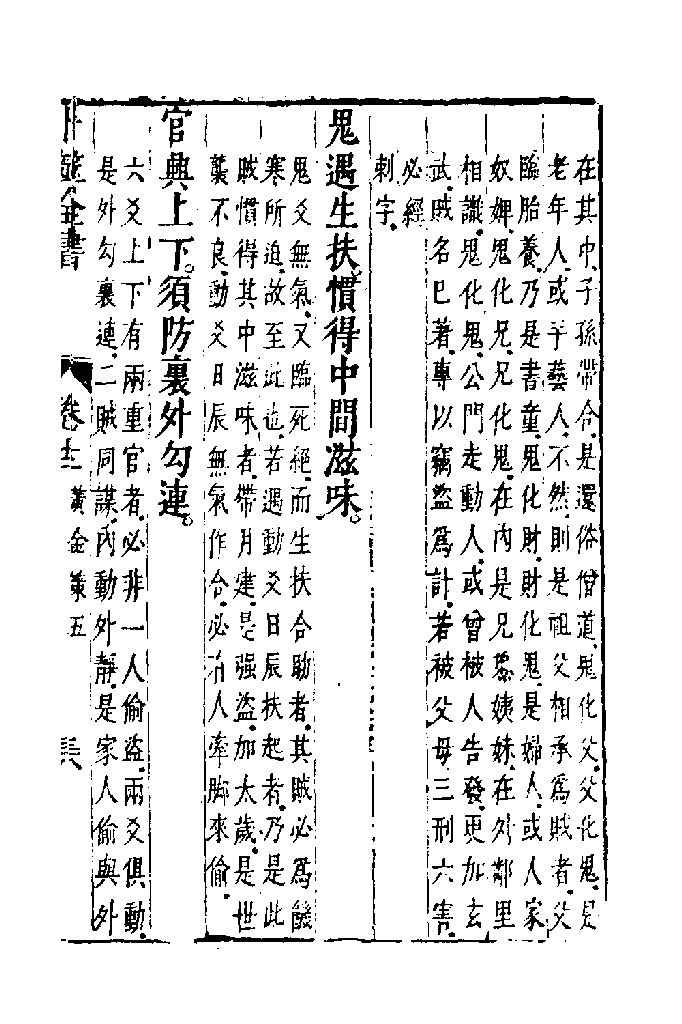 在其中子孫帶合是還俗僧道鬼化父父化鬼是
老年人或手藝人不然則是祖父相承爲賊者父
臨胎養乃是書童鬼化財財化鬼是婦人或人家
奴婢鬼化兄兄化鬼在内是兄弟姨妹在外鄰里
相識鬼化鬼公門走動人或曾被人告發更加玄
武賊名已著專以竊盜爲計若被父母三刑六害
必經
刺字
鬼遇生扶慣得中間滋味
鬼爻無氣又臨死絕而生扶合助者其賊必爲饑
寒所迫故至此也若遇動爻日辰扶起者乃是此
賊慣得其中滋味者帶月建是强盜加太歲是世
襲不良動爻日辰無氣作合必有人牽脚來偷
官興上下須防裏外勾連
六爻上下有兩重官者必非一人偷盜兩爻俱動
是外勾裏連二賊同謀内動外靜是家人偷與外
卜筮全書 卷十二 黃金策五